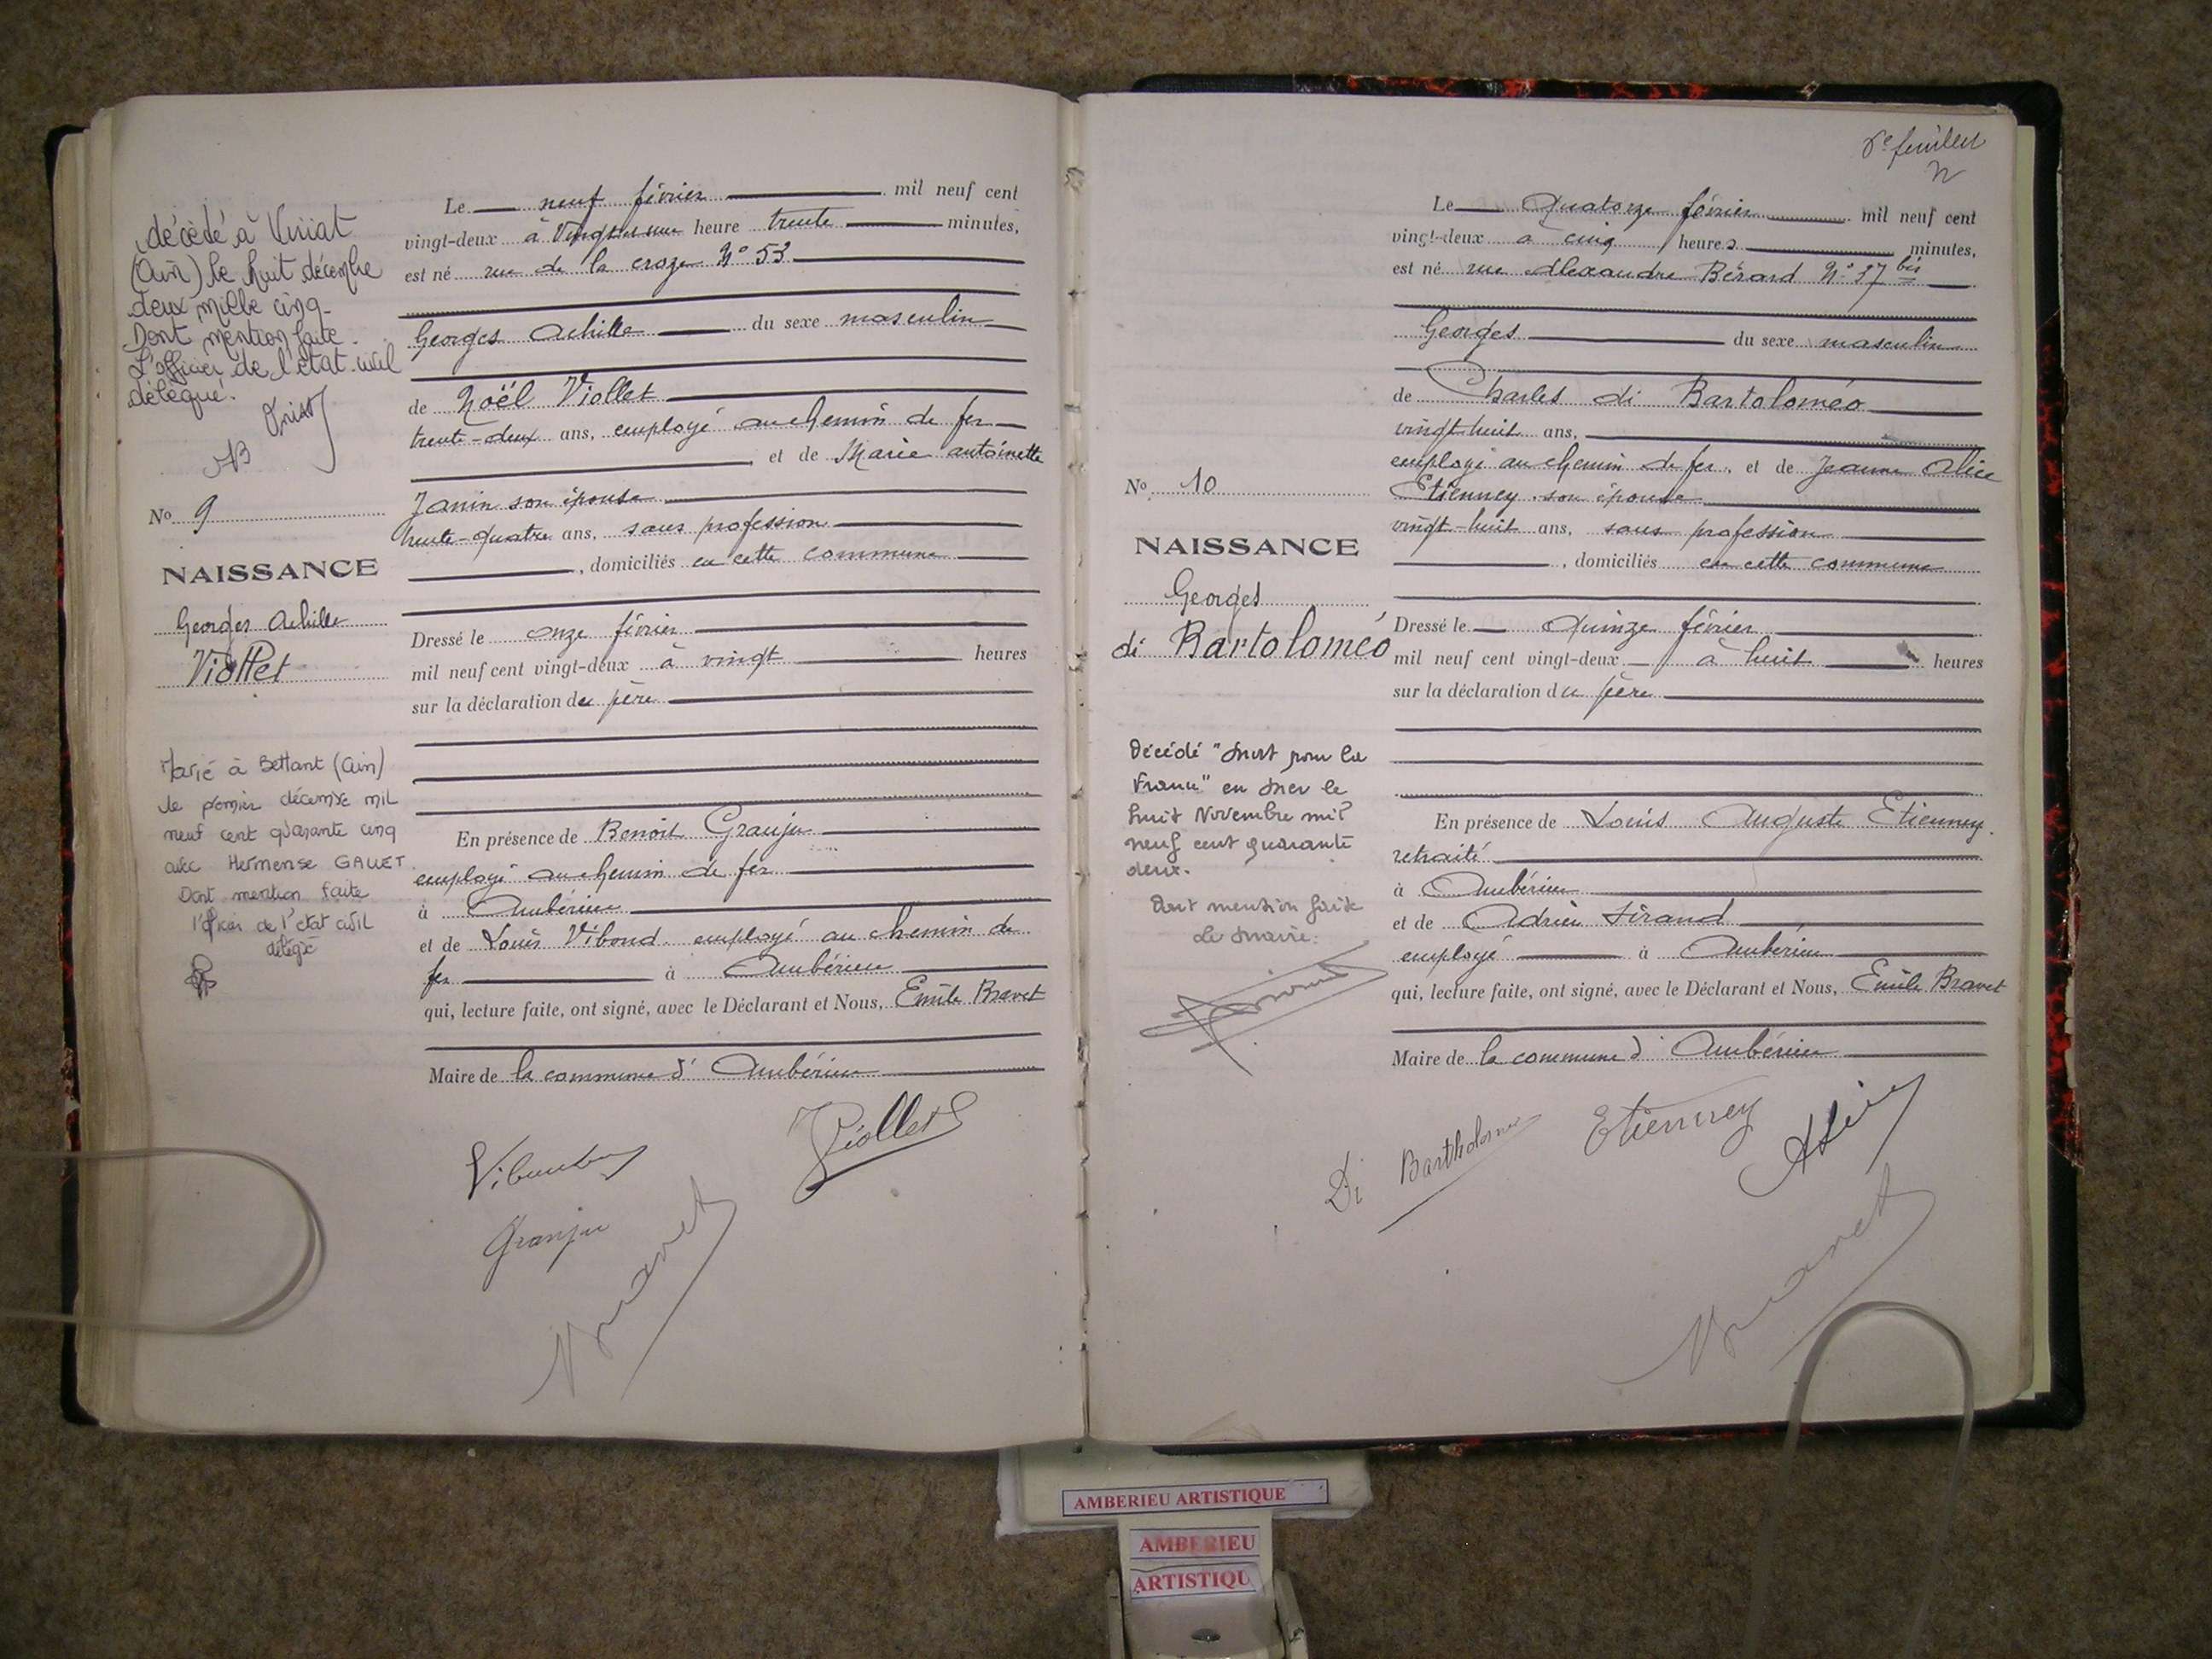 décédé à Viriat
(Ain) le huit décembre
deux mille cinq.
Dont mention faite.
L'officier de l'état civil
délégué.
No 9
NAISSANCE
Georges Achille
Viollet
Marié à Bettant (Ain)
le premier décembre mil
neuf cent quarante cinq
avec Hermense GALLET.
Dont mention faite
l'officier de l'état civil
délégué
Le neuf février mil neuf cent
vingt-deux à Vingt et une heure trente minutes,
est né rue de la croze N° 53
Georges Achille du sexe masculin
de Noël Viollet
trente-deux ans, employé au chemin de fer
et de Marie Antoinette
Janin son épouse
trente-quatre ans, sans profession
, domiciliés en cette commune
Dressé le onze février
mil neuf cent vingt-deux à vingt heures
sur la déclaration du père
En présence de Benoit Granju
employé au chemin de fer
à Ambérieu
et de Louis Vibond employé au chemin de
fer à Ambérieu
qui, lecture faite, ont signé, avec le Déclarant et Nous, Emile Bravet
Maire de la commune d'Ambérieu
Viollet
Granju
Bravet
No 10
NAISSANCE
Georges
di Bartoloméo
Décédé "Mort pour la
France" en mer le
huit Novembre mil
neuf cent quarante
deux.
Dont mention faite
Le Maire:
Le Quatorze février mil neuf cent
vingt-deux à cinq heures minutes,
est né rue Alexandre Bérard N° 37 bis
Georges du sexe masculin
de Charles di Bartoloméo
vingt huit ans,
employé au chemin de fer, et de Jeanne Alice
Etienney son épouse
vingt-huit ans, sans profession
, domiciliés en cette commune
Dressé le Quinze février
mil neuf cent vingt-deux à huit heures
sur la déclaration du père
En présence de Louis Auguste Etienney
retraité
à Ambérieu
et de Adrien Sirand
employé à Ambérieu
qui, lecture faite, ont signé, avec le Déclarant et Nous, Emile Bravet
Maire de la commune d'Ambérieu
Di Bartholomeo
Etienney
Bravet
AMBERIEU ARTISTIQUE
AMBERIEU
ARTISTIQU